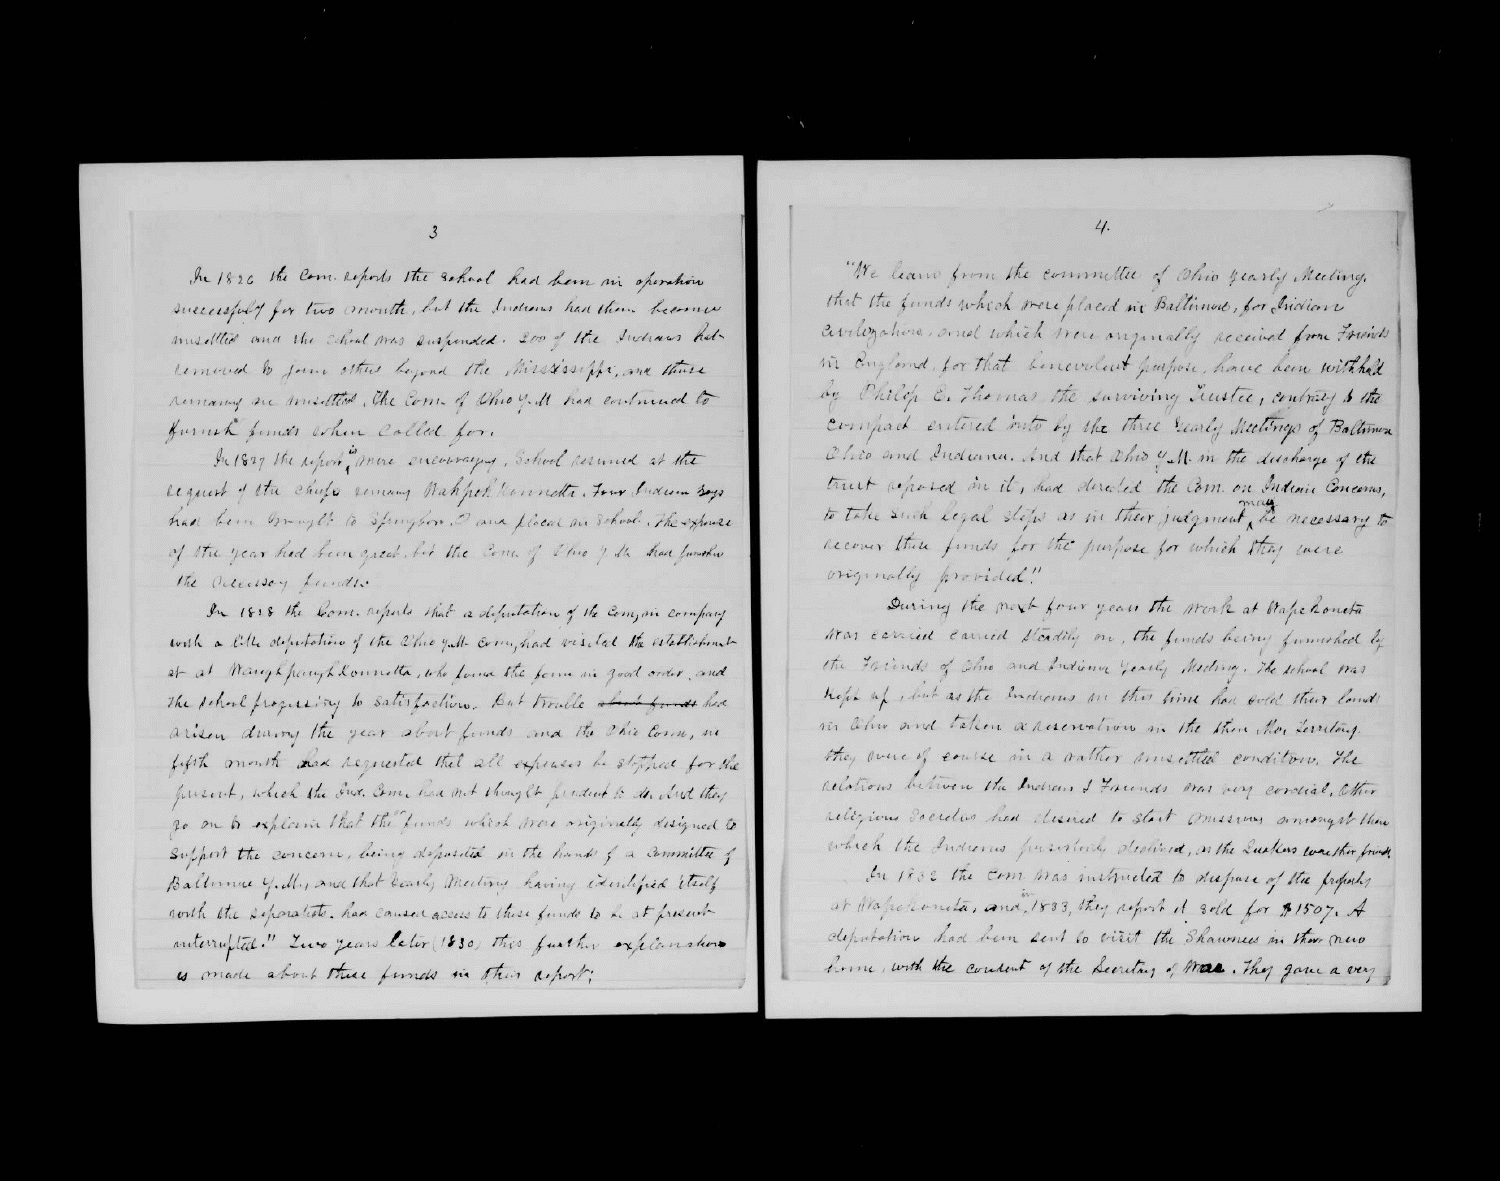 3
In 1826 the Com. reports the School had been in operation
successfuly for two month, but the Indians had then become
unsettled and the school was suspended. 200 of the Indians had
removed to join others beyond the Mississippi, and those
remaing are unsettled. The Com. of Ohio Y.M had continued to
furnish funds when called for.
In 1827 the report is more encouraging, School resumed at the
request of the chiefs remaing Wahpohkonnetta. Four Indian boys
had been brought to Springboro. O and placed in School. The expense
of the year had been great, but the Com. of Ohio Y M. had furnished
the necessary funds.
In 1828 the Com. reports that a deputation of the Com, in company
with a like deputation of the Ohio Y.M. Com, had visited the establishment
at at Waughpaughkonnetta, who found the farm in good order, and
the school progressing to satisfaction. But trouble about funds had
arisen during the year about funds and the Ohio Com, in
fifth month had requested that all expenses be stopped for the
present, which the Ind. Com. had not thought prudent to do. And they
go on to explain that the "funds which were originally designed to
support the concern, being deposited in the hands of a Committee of
Baltimore Y.M., and that Yearly Meeting having identified itself
with the Separatists. had caused access to those funds to be at present
interrupted." Two years later (1830) this further explanation
is made about these funds in their report;
4.
"We learn from the committee of Ohio Yearly Meeting.
that the funds which were placed in Baltimore, for Indian
civilization, and which were originally received from Friends
in England, for that benevolent purpose, have been withheld
by Philip E. Thomas the surviving Trustee, contrary to the
compact entered into by the three Yearly Meetings of Baltimore
Ohio and Indiana. And that Ohio Y.M. in the discharge of the
trust reposed in it, had directed the Com. on Indian Concerns,
to take such legal steps as in their judgment may be necessary to
recover these funds for the purpose for which they were
originally provided."
During the next four years the work at Wapekoneta
was carried carried steadily on, the funds being furnished by
the Friends of Ohio and Indiana Yearly Meeting. The school was
kept up, but as the Indians in this time had sold their lands
in Ohio and taken a reservation in the then Mo. Territory.
they were of course in a rather unsettled condition. The
relations between the Indians & Friends was very cordial. Other
religious Societies had desired to start missions amongst them
which the Indians persistently declined, as the Quakers were their friends.
In 1832 the Com was instructed to dispose of the property
at Wapekoneta, and in 1833, they report it sold for $1507. A
deputation had been sent to visit the Shawnees in their new
home, with the consent of the Secretary of War. They gave a very